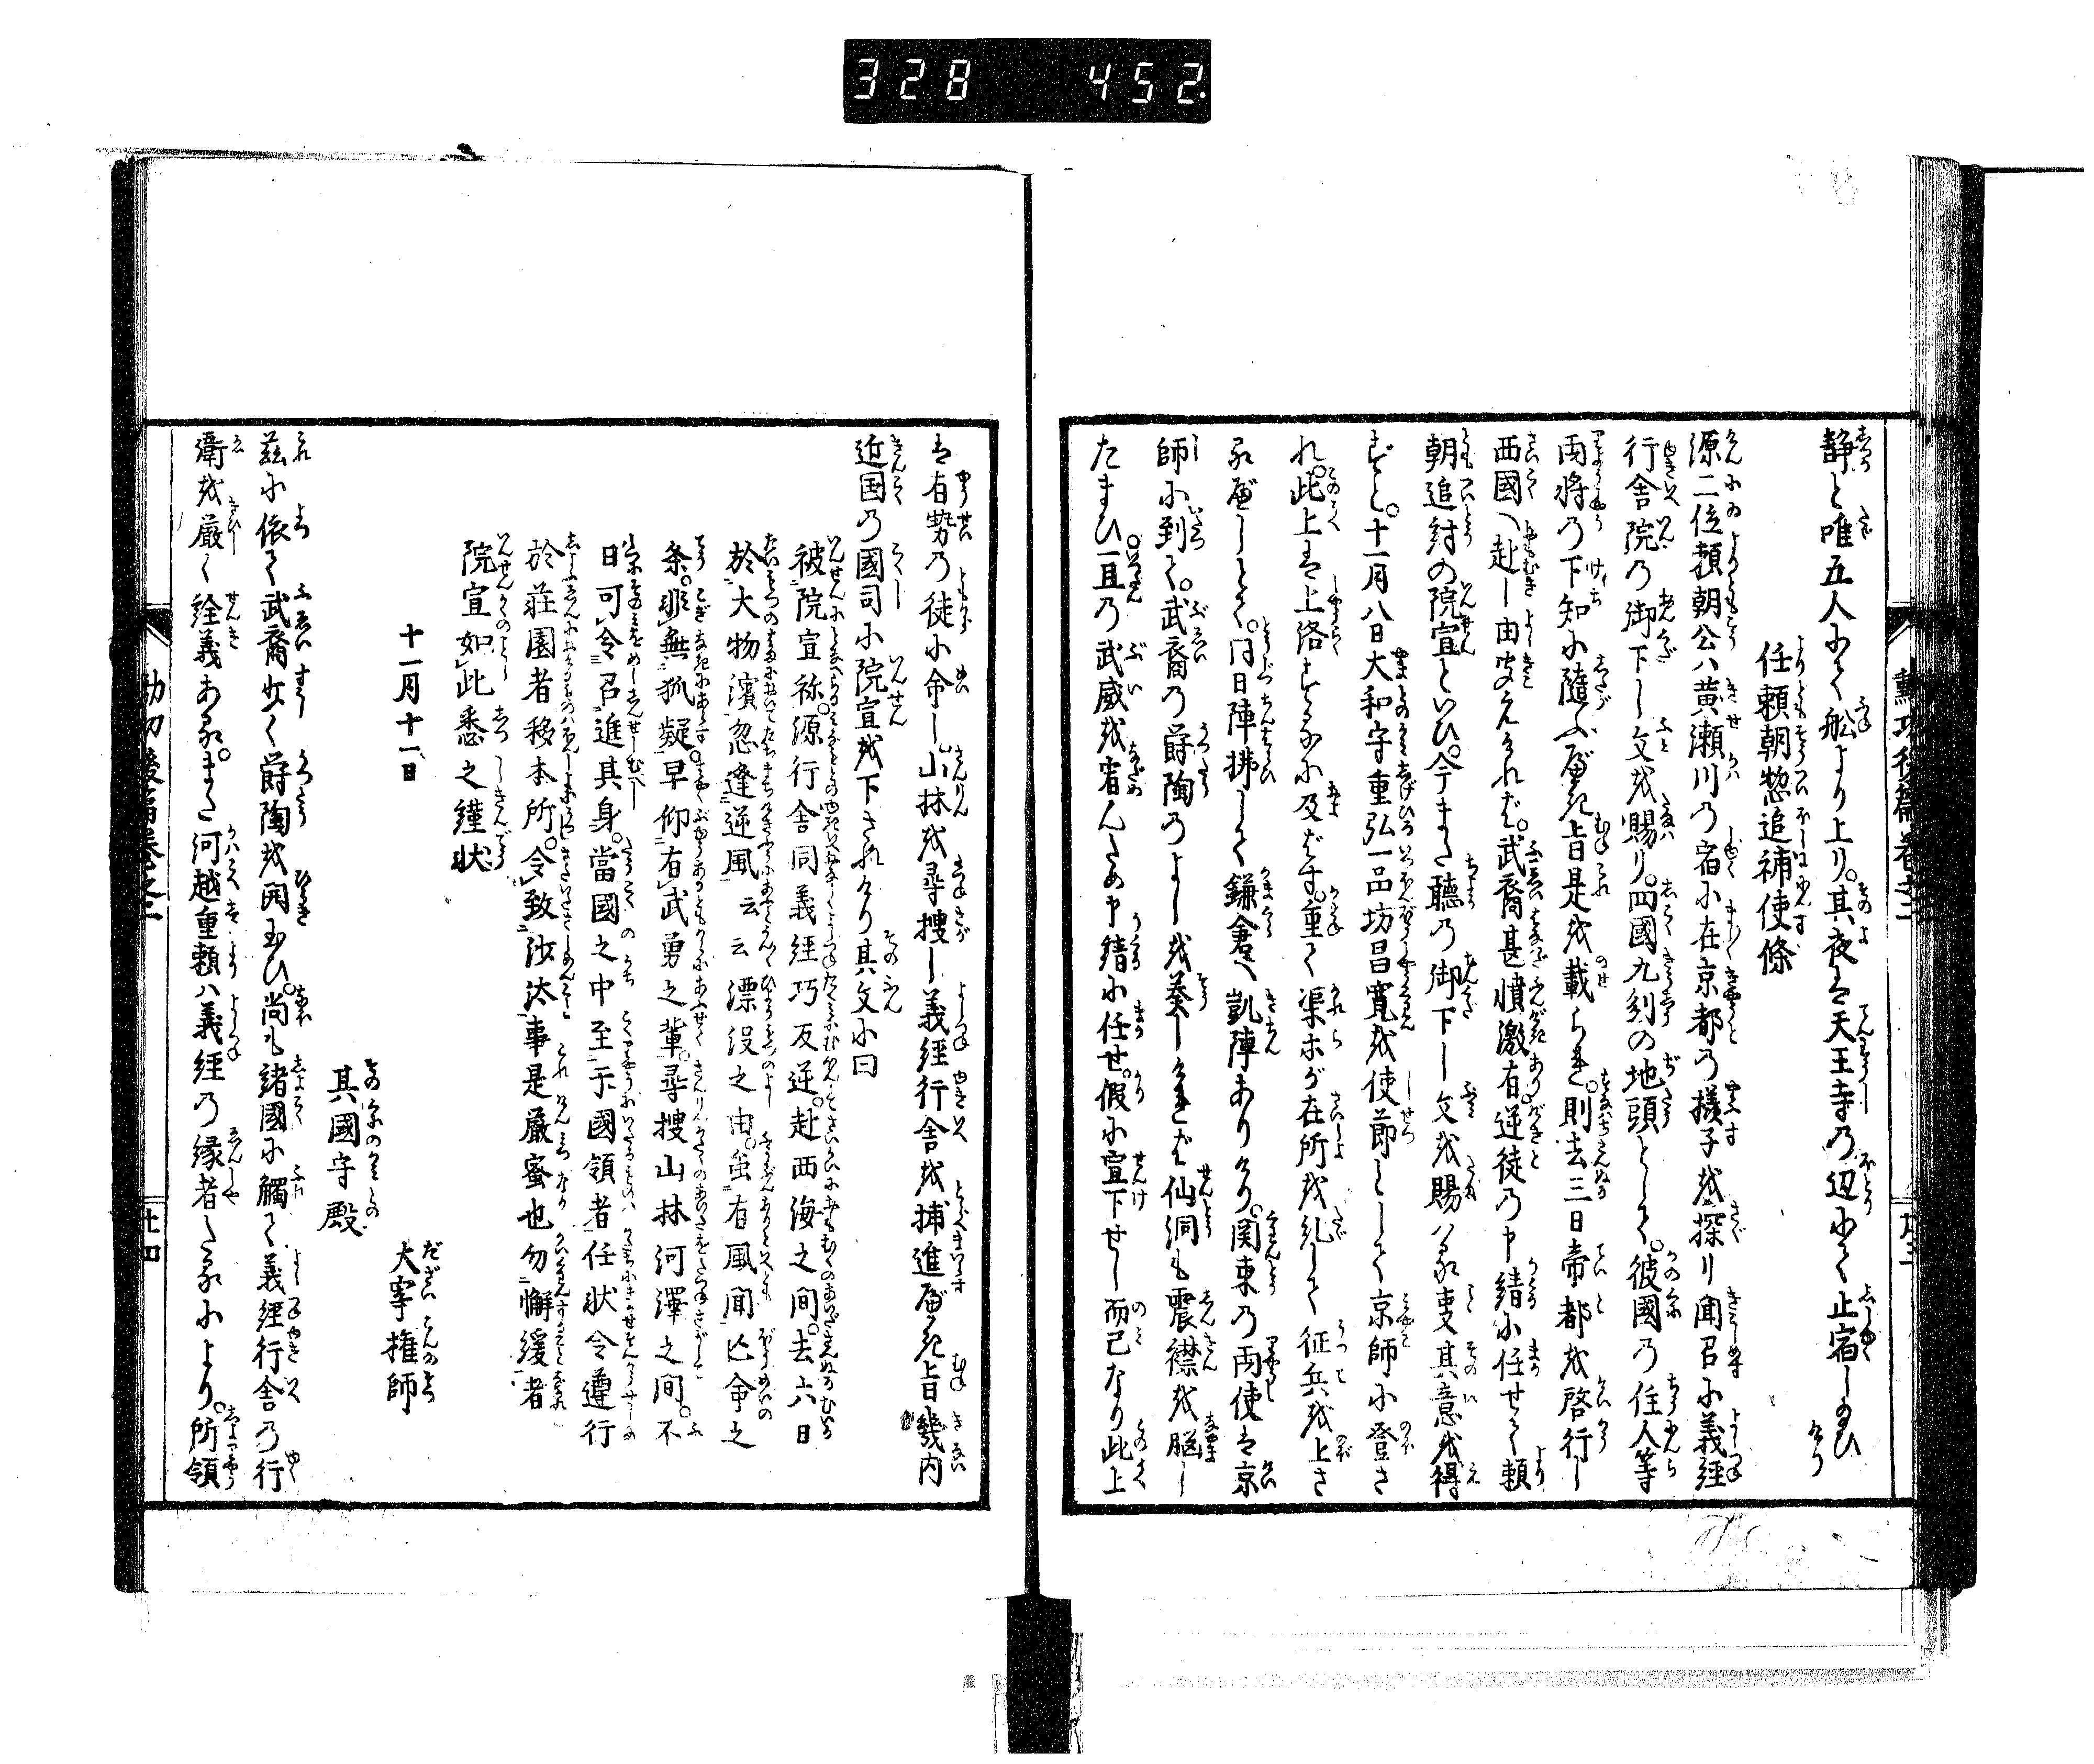 328 452
静と唯五人にて舩より上り。其夜は天王寺の辺にて止宿し給ひけり
任頼朝惣追補使條
源二位頼朝公ハ黄瀬川の宿に在京都の様子を探り聞召に義経
行舎院の御下し文を賜り。四國九刻の地頭として。彼國の住人等
両将の下知に随ふべき旨是を載らる。則去三日帝都を啓行し
西國へ赴し由聞えけれバ。武裔甚憤激有。逆徒の申請に任せて頼
朝追討の院宣といひ。今また聴の御下し文を賜ハる叓其意を得
ずと。十一月八日大和守重弘一品坊昌寛を使節として京師に登さ
れ。此上は上洛するに及ばず。重て渠等が在所を糺して征兵を上さ
るべしとて。同日陣拂して鎌倉へ凱陣ありけり。関東の両使は京
師に到て。武裔の欝陶のよしを奏しけれバ仙洞も震襟を脳し
たまひ一旦の武威を省んため申請に任せ。假に宣下せし而已なり此上
は有勢の徒に命し山林を尋捜し義経行舎を捕進べき旨畿内
近国の國司に院宣を下されけり其文に曰
被院宣称。源行舎同義経巧反逆。赴西海之間。去六日
於大物濱忽逢逆風云云漂没之由。虽有風聞亡命之
条。非無狐疑。早仰有武勇之輩。尋捜山林河澤之間。不
日可令召進其身。當國之中至于國領者任状令遵行
於荘園者移本所。令致沙汰事是厳蜜也勿懈緩者
院宣如此悉之謹状
十一月十一日
大宰権師
其國守殿
茲に依て武裔少く欝陶を開玉ひ。尚も諸國に觸て義経行舎の行
衛を厳く詮義ある。また河越重頼ハ義経の縁者たるにより。所領